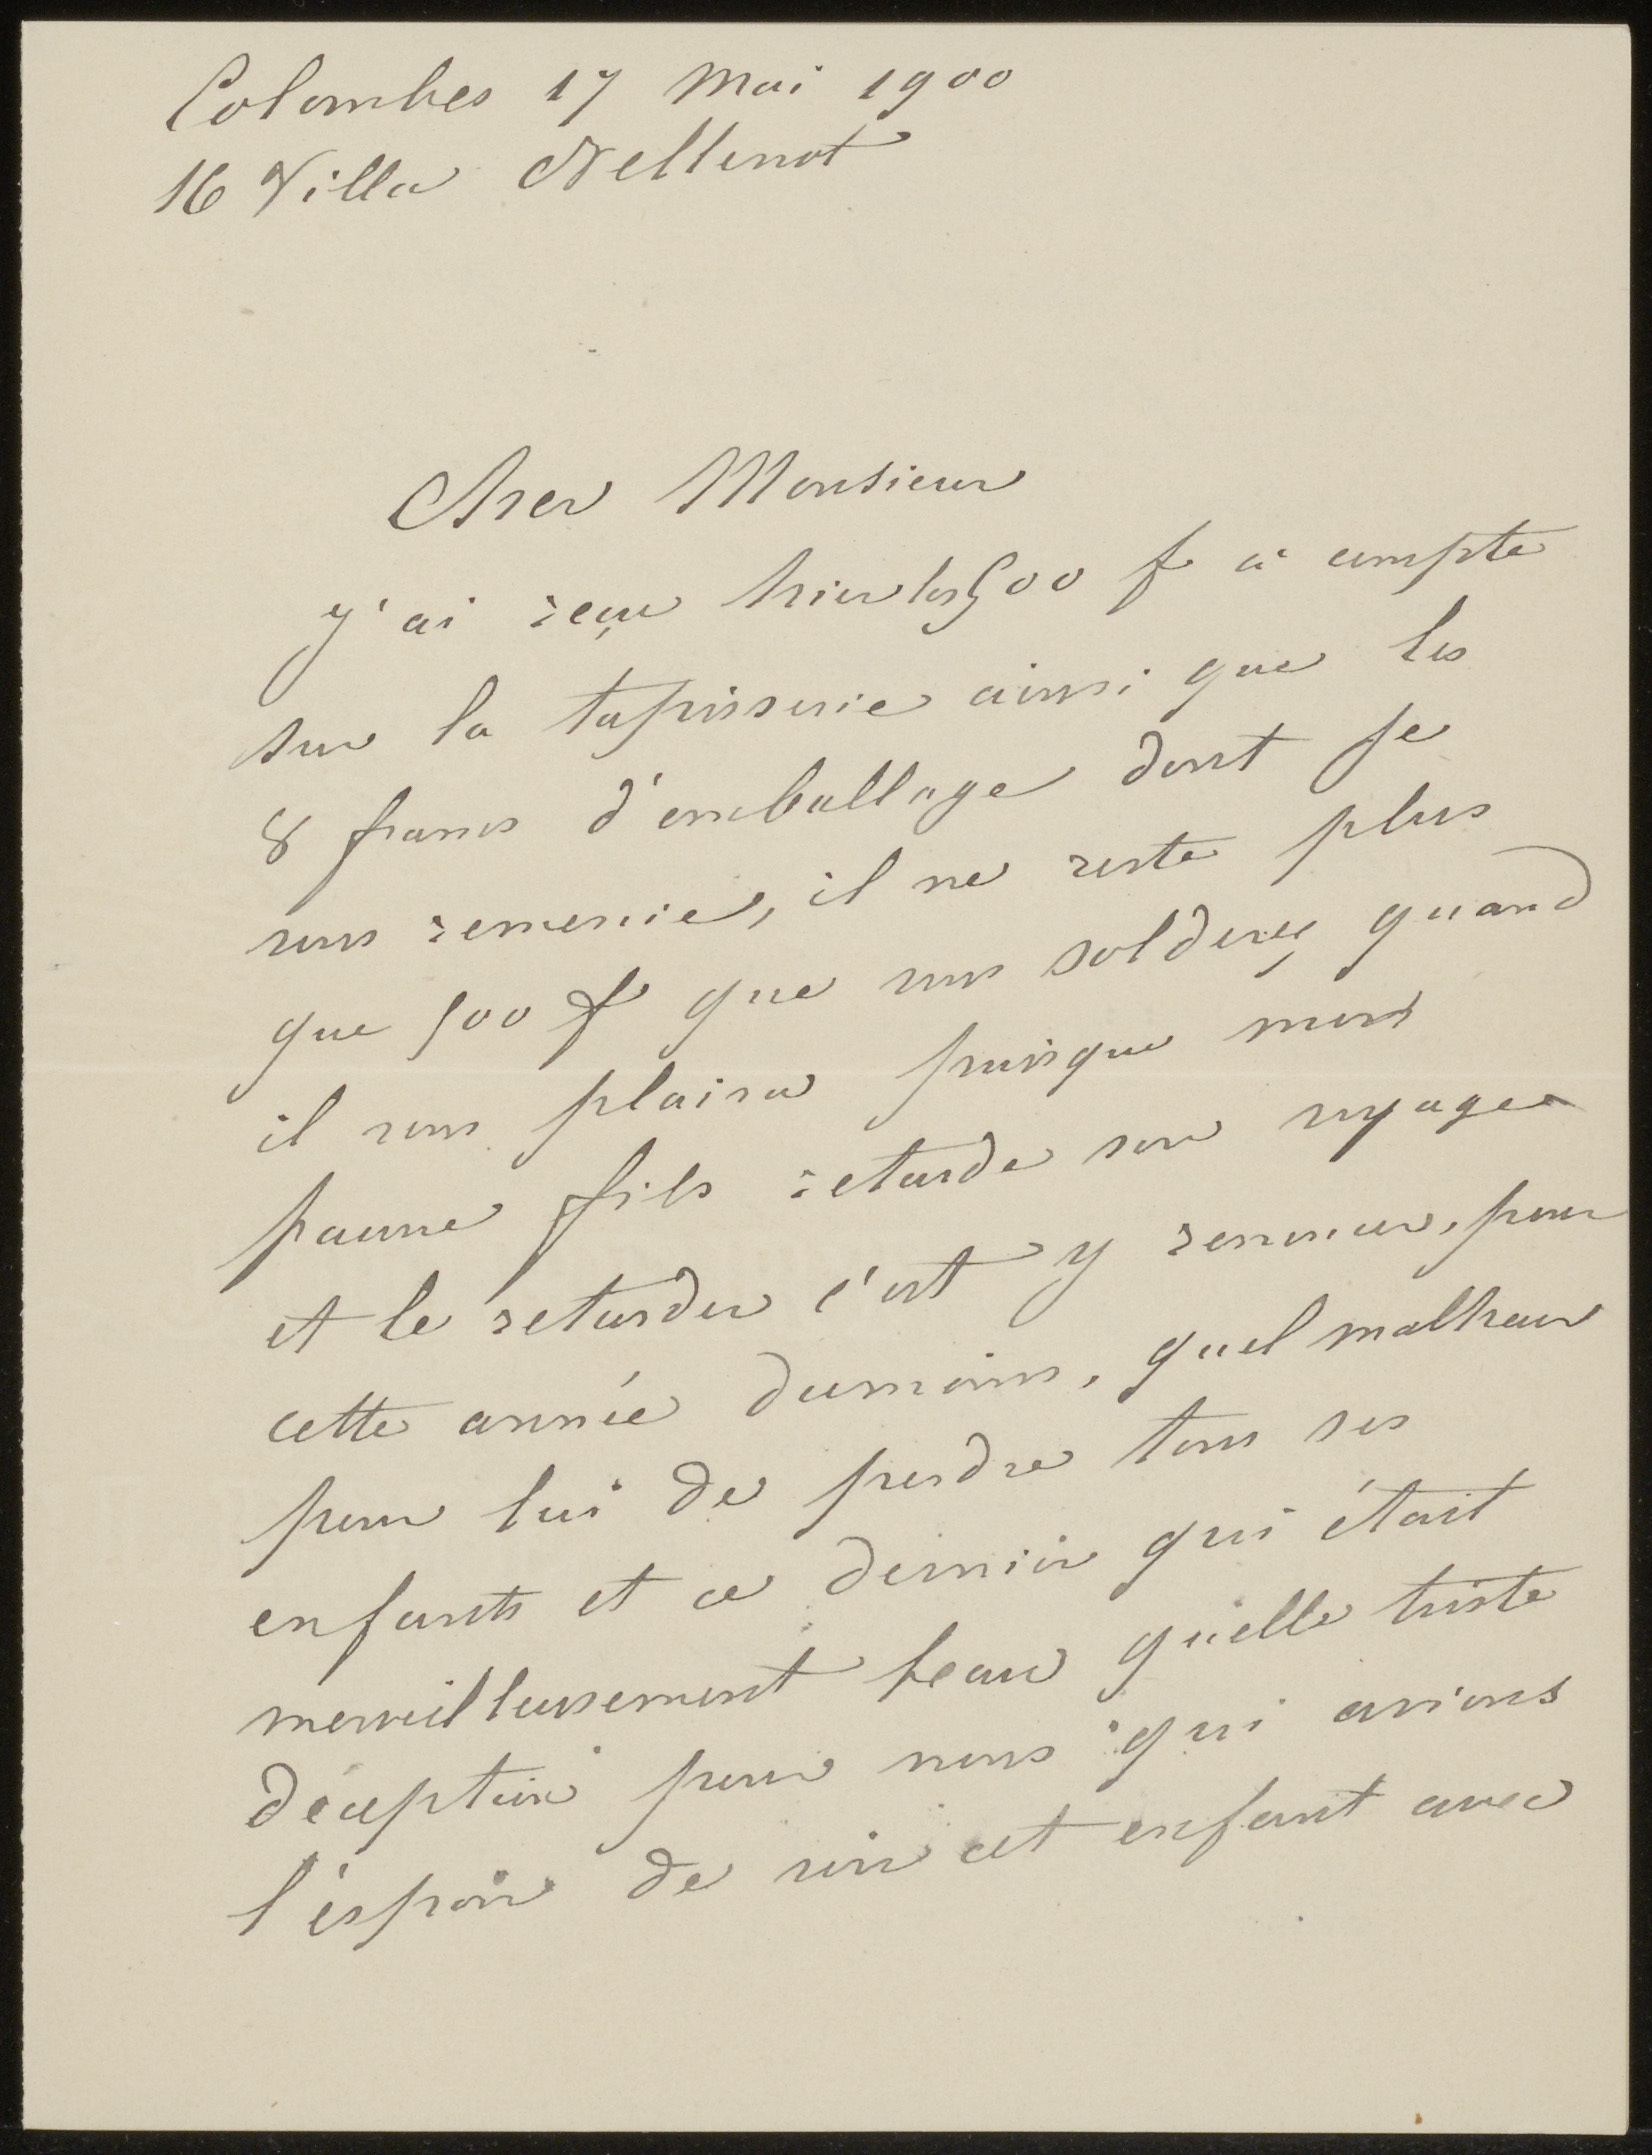 Colombes 17 Mai 1900
16 Villa Nellenot
Cher Monsieur
J'ai reçu hier les 500 f à compte
sur la tapisserie ainsi que les
8 francs d'emballage dont je
vous remercie, il ne reste plus
que 500 f que vous solderez quand
il vous plaira puisque mon
pauvre fils retarde son voyage
et le retarder c'est y renoncer, pour
cette année dumoins, quel malheur
pour lui de perdre tous ses
enfants et ce dernier qui était
merveilleusement beau quelle triste
déception pour nous qui avions
l'éspoir de voir cet enfant avec